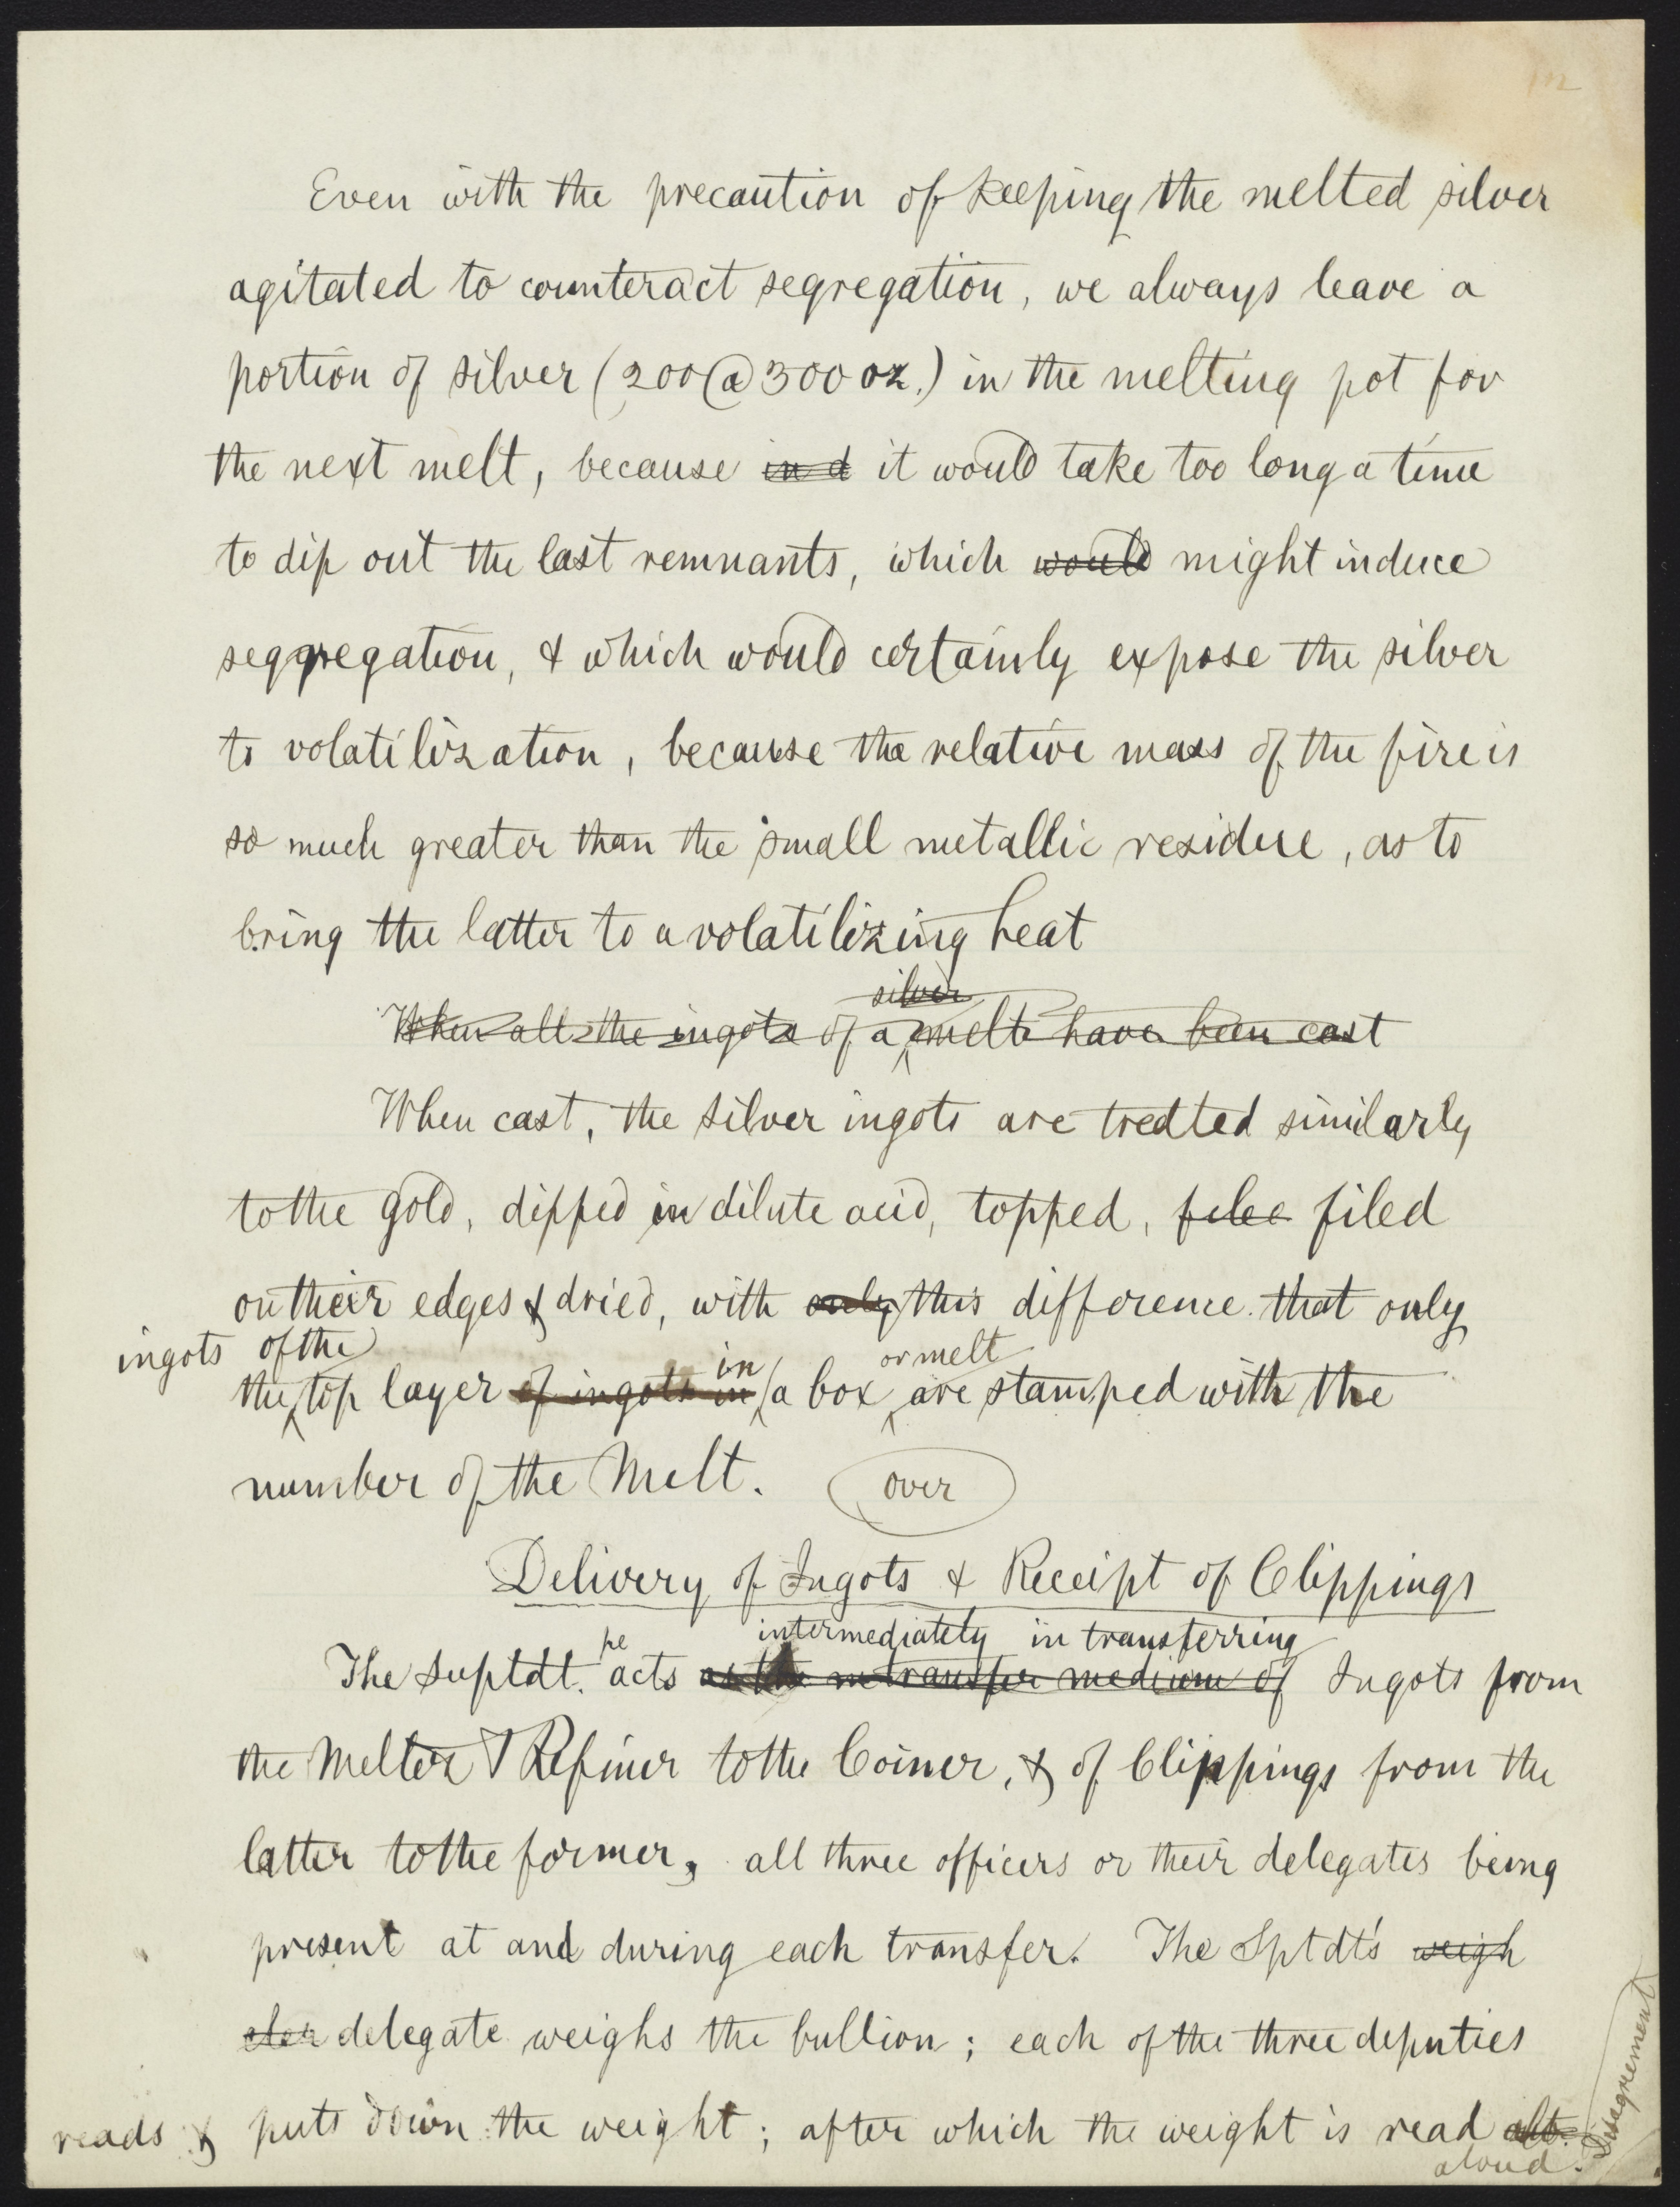 Even with the precaution of keeping the melted silver
agitated to counteract segregation, we always leave a
portion of silver (200 @ 300 oz.) in the melting pot for
the next melt, because in d it would take too long a time
to dip out the last remnants, which would might induce
seggregation, & which would certainly expose the silver
to volatilization, because the relative mass of the fire is
so much greater than the small metallic residue, as to
bring the latter to a volatilizing heat
silver
When all the ingots of a melt have been cast
When cast, the silver ingots are treated similarly
to the gold, dipped in dilute acid, topped, filee filed
on their edges & dried, with only this difference that only
ingots of the in or melt
the top layer of ingots in a box are stamped with the
number of the Melt. over
Delivery of Ingots & Receipt of Clippings
intermediately in transferring
The Suptdt. acts as the transfer medium of Ingots from
the Melter & Refiner to the Coiner, & of Clippings from the
latter to the former, all three officers or their delegates being
present at and during each transfer. The Sptdt's weigh
delegate weighs the bullion; each of the three deputies
reads & puts down the weight; after which the weight is read
aloud. Disagreement